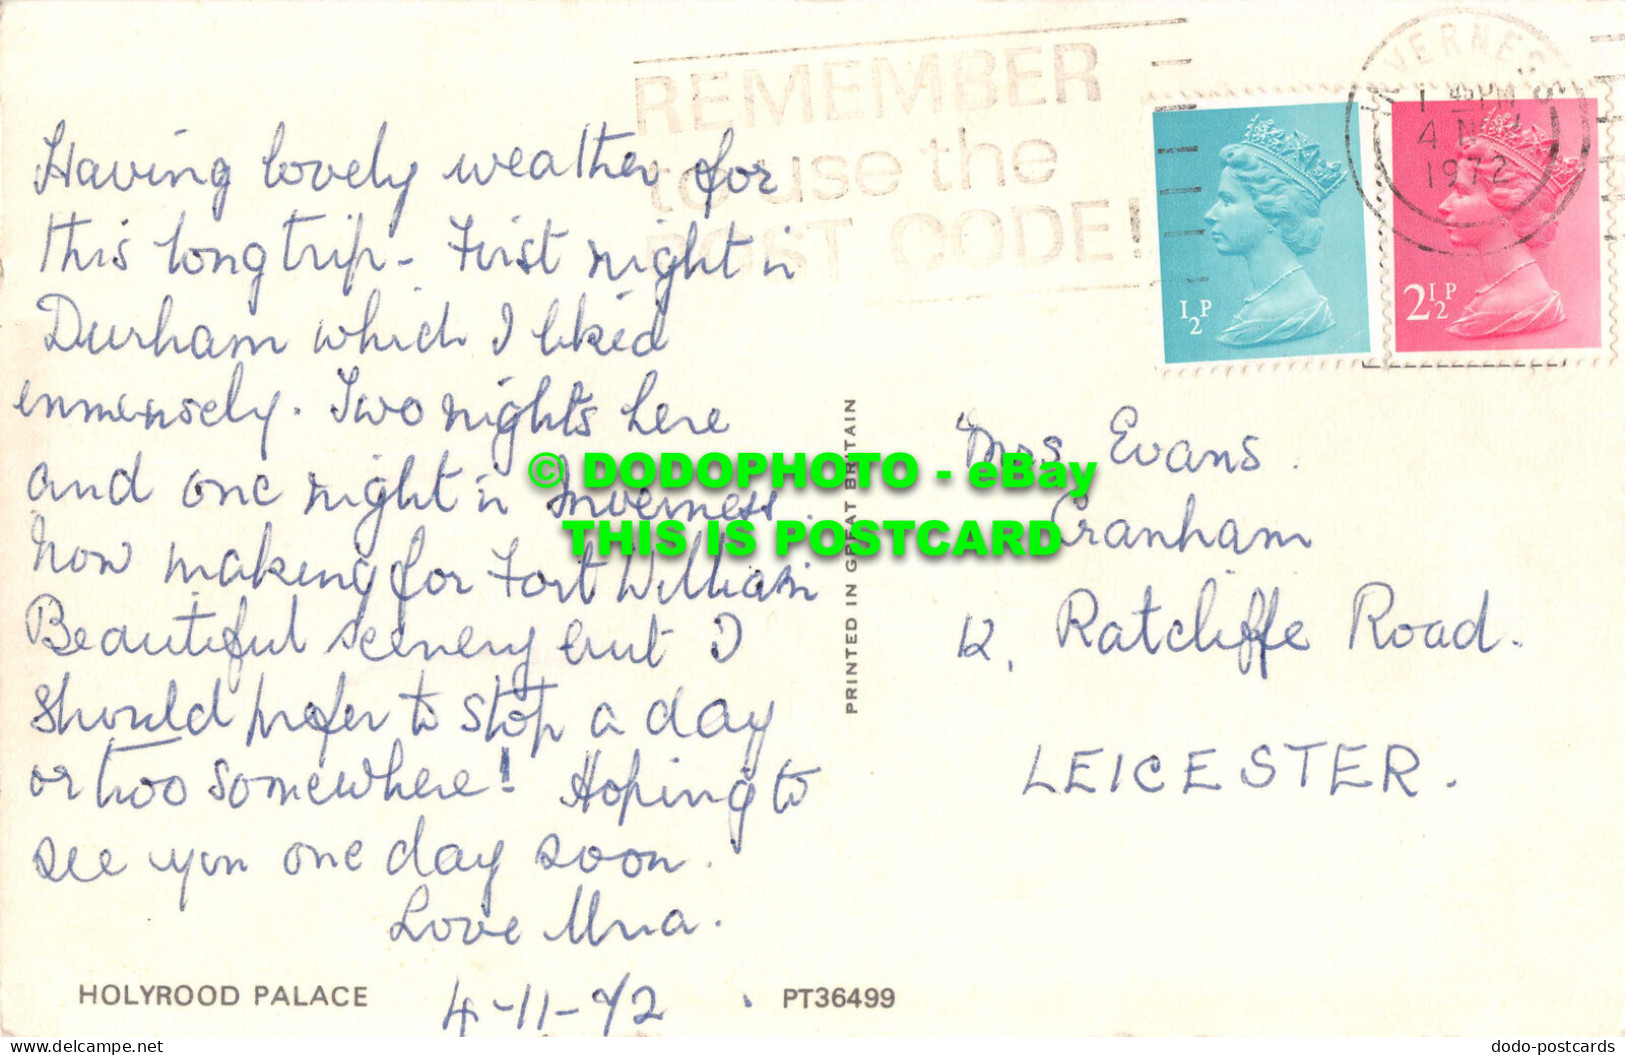 REMEMBER
to use the
POST CODE!
INVERNESS
1 45 PM
4 NOV
1972
½P
2½P
Having lovely weather for
this long trip - First night in
Durham which I liked
immensely. Two nights here
and one night in Inverness.
Now making for Fort William
Beautiful scenery but I
should prefer to stop a day
or two somewhere! Hoping to
see you one day soon.
Love Una.
4-11-72
HOLYROOD PALACE
PT36499
PRINTED IN GREAT BRITAIN
Mrs Evans.
Cranham
12, Ratcliffe Road.
LEICESTER.
© DODOPHOTO - eBay
THIS IS POSTCARD
www.delcampe.net
dodo-postcards